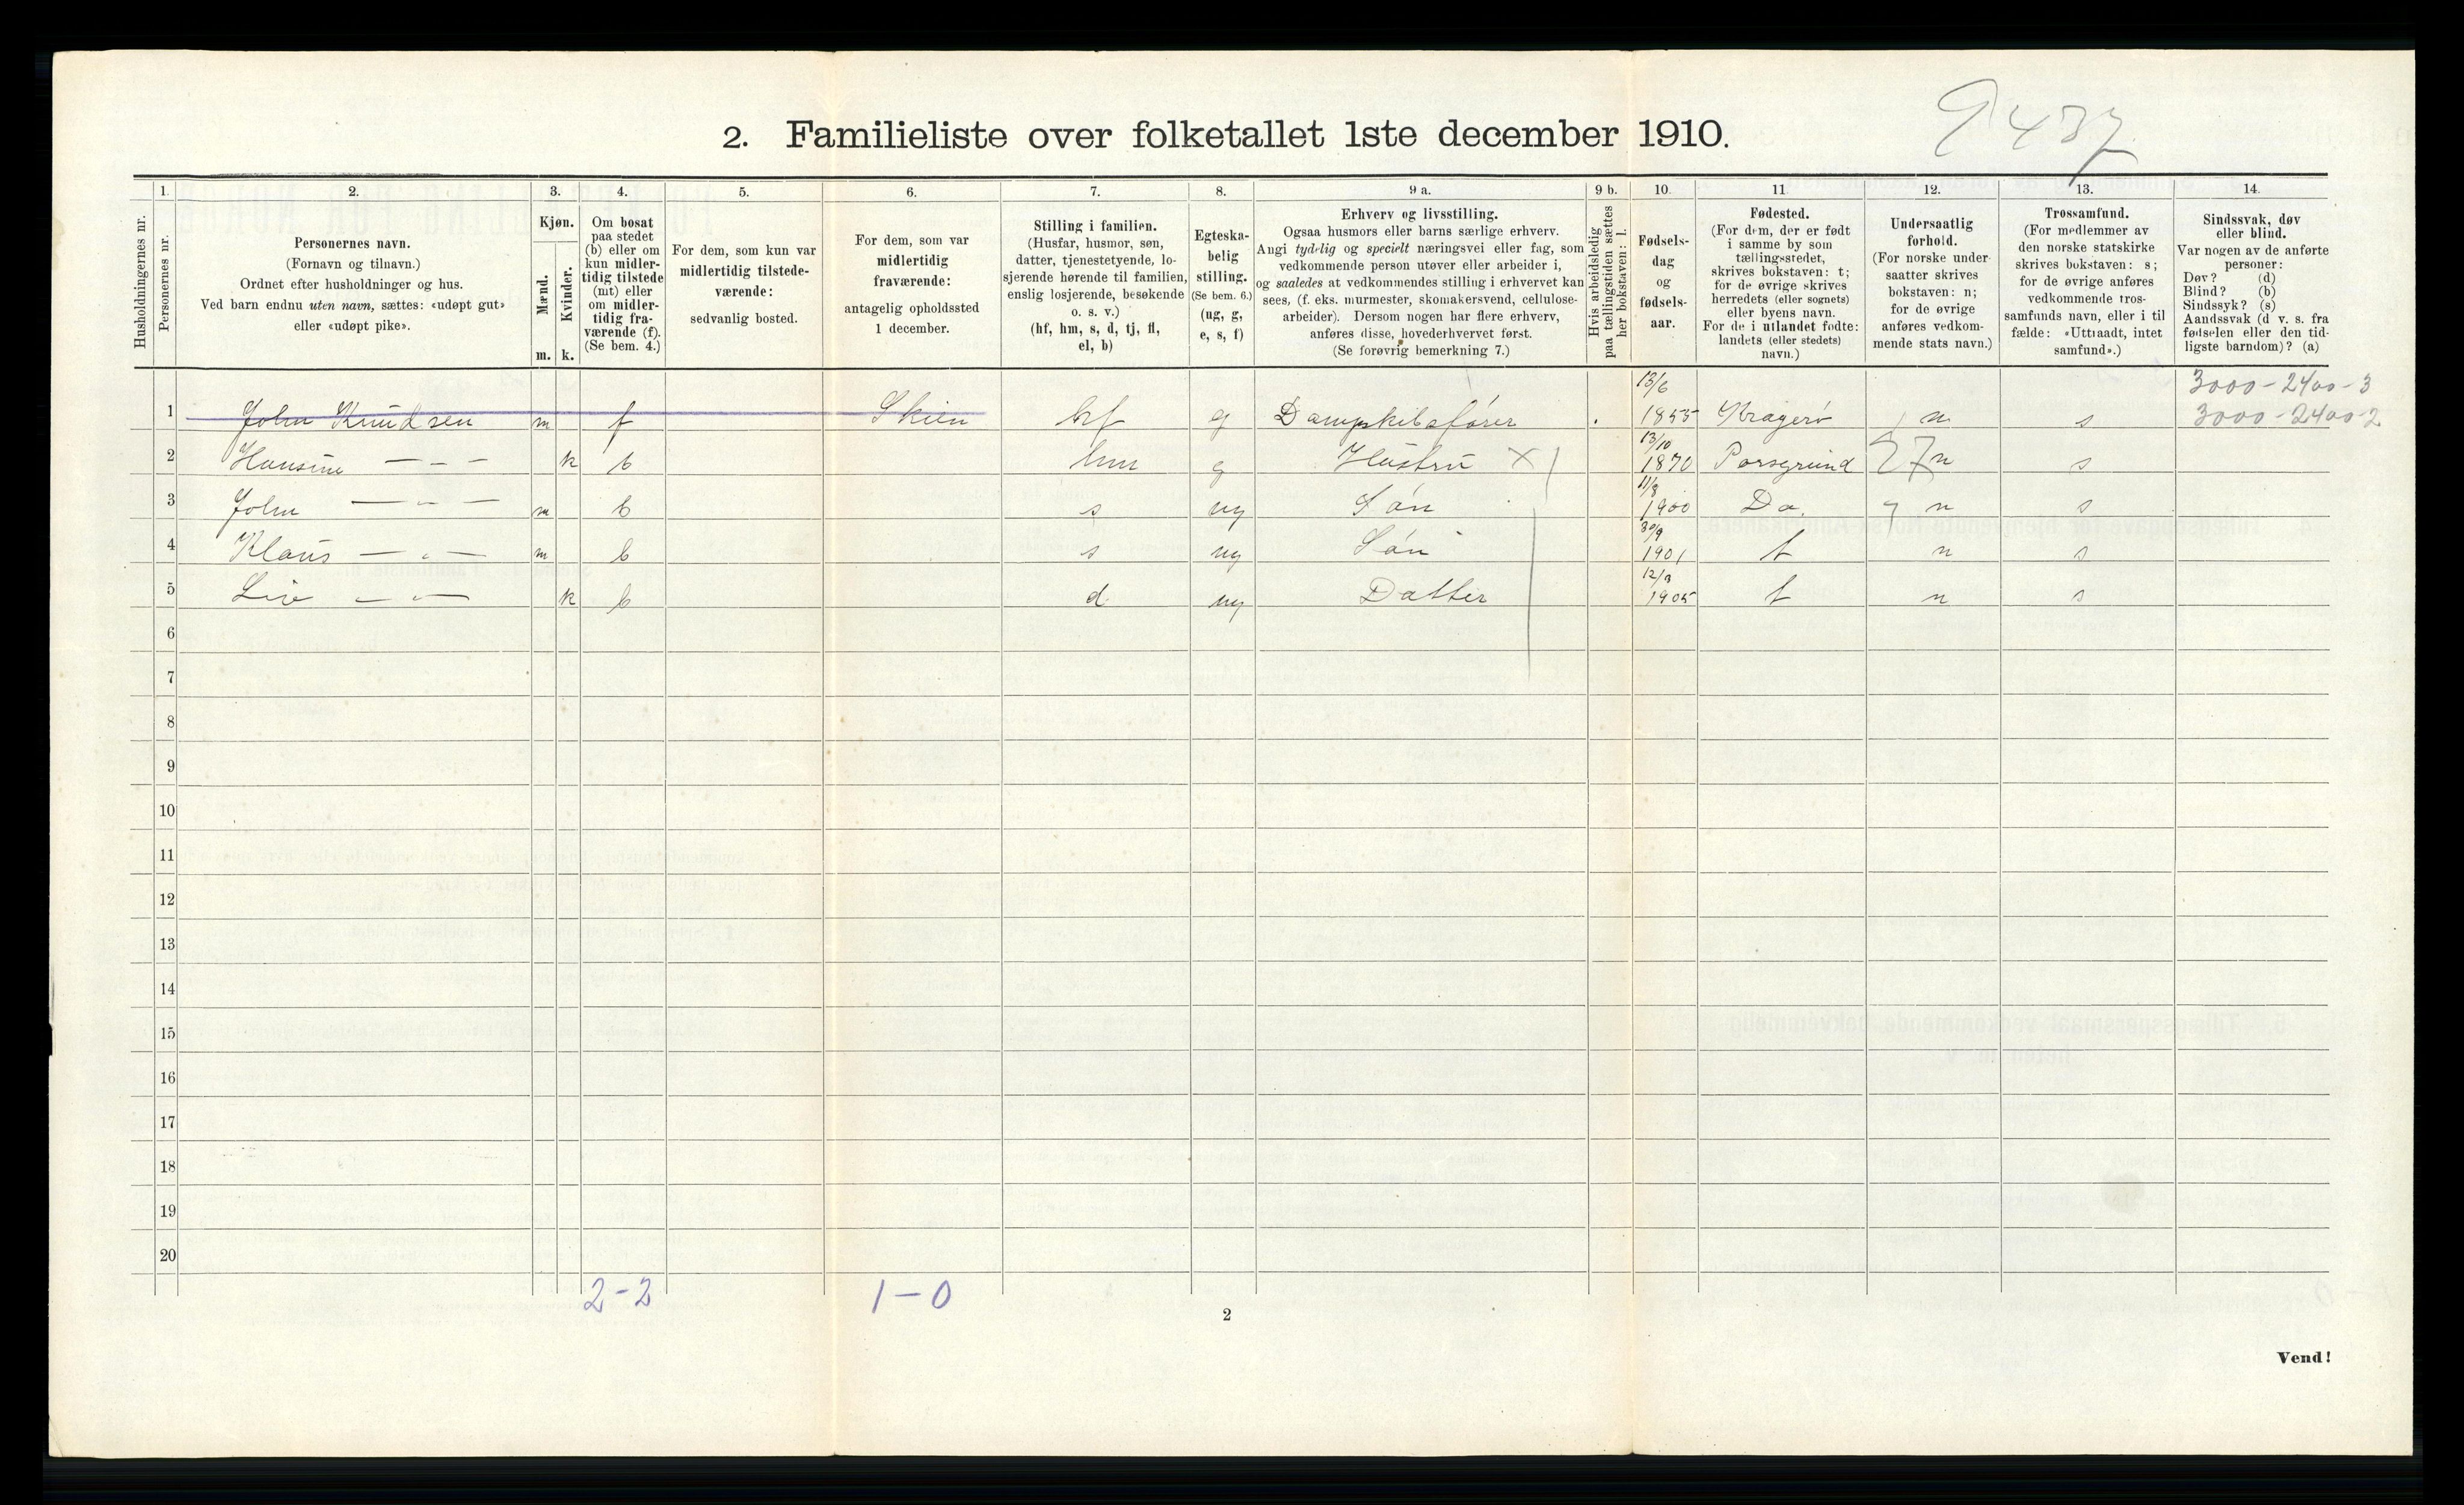 2. Familieliste over folketallet 1ste december 1910.
9437
1. 2. 3. 4. 5. 6. 7. 8. 9 a. 9 b. 10. 11 12. 13. 14.
Husholdningernes nr.
Personernes nr.
Personernes navn.
(Fornavn og tilnavn.)
Ordnet efter husholdninger og hus.
Ved barn endnu uten navn, sættes: «udøpt gut»
eller «udøpt pike».
Kjøn.
Mænd.
Kvinder.
m. k.
Om bosat
paa stedet
(b) eller om
kun midler-
tidig tilstede
(mt) eller
om midler-
tidig fra-
værende (f).
(Se bem. 4.)
For dem, som kun var
midlertidig tilstede-
værende:
sedvanlig bosted.
For dem, som var
midlertidig
fraværende:
antagelig opholdssted
1 december.
Stilling i familien.
(Husfar, husmor, søn,
datter, tjenestetyende, lo-
sjerende hørende til familien,
enslig losjerende, besøkende
o. s. v.)
(hf, hm, s, d, tj, fl,
el, b)
Egteska-
belig
stilling.
(Se bem. 6.)
(ug, g,
e, s, f)
Erhverv og livsstilling.
Ogsaa husmors eller barns særlige erhverv.
Angi tydelig og specielt næringsvei eller fag, som
vedkommende person utøver eller arbeider i,
og saaledes at vedkommendes stilling i erhvervet kan
sees, (f. eks. murmester, skomakersvend, cellulose-
arbeider). Dersom nogen har flere erhverv,
anføres disse, hovederhvervet først.
(Se forøvrig bemerkning 7.)
Hvis arbeidsledig
paa tællingstiden sættes
her bokstaven: l.
Fødsels-
dag
og
fødsels-
aar.
Fødested.
(For dem, der er født
i samme by som
tællingsstedet,
skrives bokstaven: t;
for de øvrige skrives
herredets (eller sognets)
eller byens navn.
For de i utlandet fødte:
landets (eller stedets)
navn.)
Undersaatlig
forhold.
(For norske under-
saatter skrives
bokstaven: n;
for de øvrige
anføres vedkom-
mende stats navn.)
Trossamfund.
(For medlemmer av
den norske statskirke
skrives bokstaven: s;
for de øvrige anføres
vedkommende tros-
samfunds navn, eller i til
fælde: «Uttraadt, intet
samfund».)
Sindssvak, døv
eller blind.
Var nogen av de anførte
personer:
Døv? (d)
Blind? (b)
Sindssyk? (s)
Aandssvak (d v. s. fra
fødselen eller den tid-
ligste barndom)? (a)
3000-2400-3
1 John Knudsen m f Skien hf g Dampskibsfører 13/6 1855 Kragerø n s 3000-2400-2
2 Hansine — - — k b hm g Hustru X 13/10 1870 Porsgrund 27 n s
3 John — - — m b s ug Søn 11/8 1900 Do. n s
4 Klaus — - — m b s ug Søn 30/9 1901 t n s
5 — - — k b d ug Datter 12/3 1905 t n s
6
7
8
9
10
11
12
13
14
15
16
17
18
19
20
2-2 1-0
2
Vend!